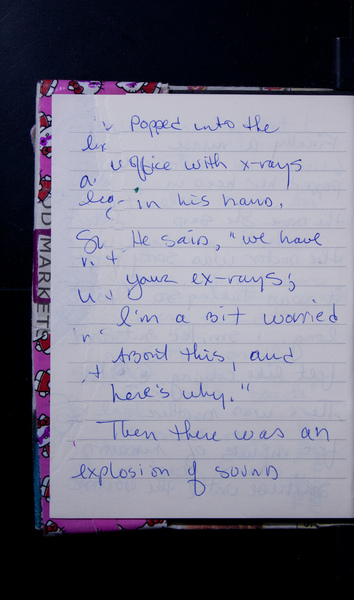 Popped into the
office with x-rays
in his hand.
He said, "we have
your ex-rays;
I'm a bit worried
about this, and
here's why."
Then there was an
explosion of sound
MARKET